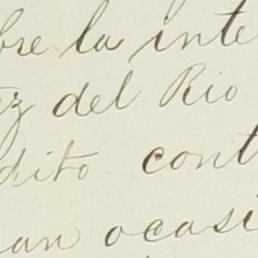 bre la inte
ez del Rio
dito cont
an ocasi